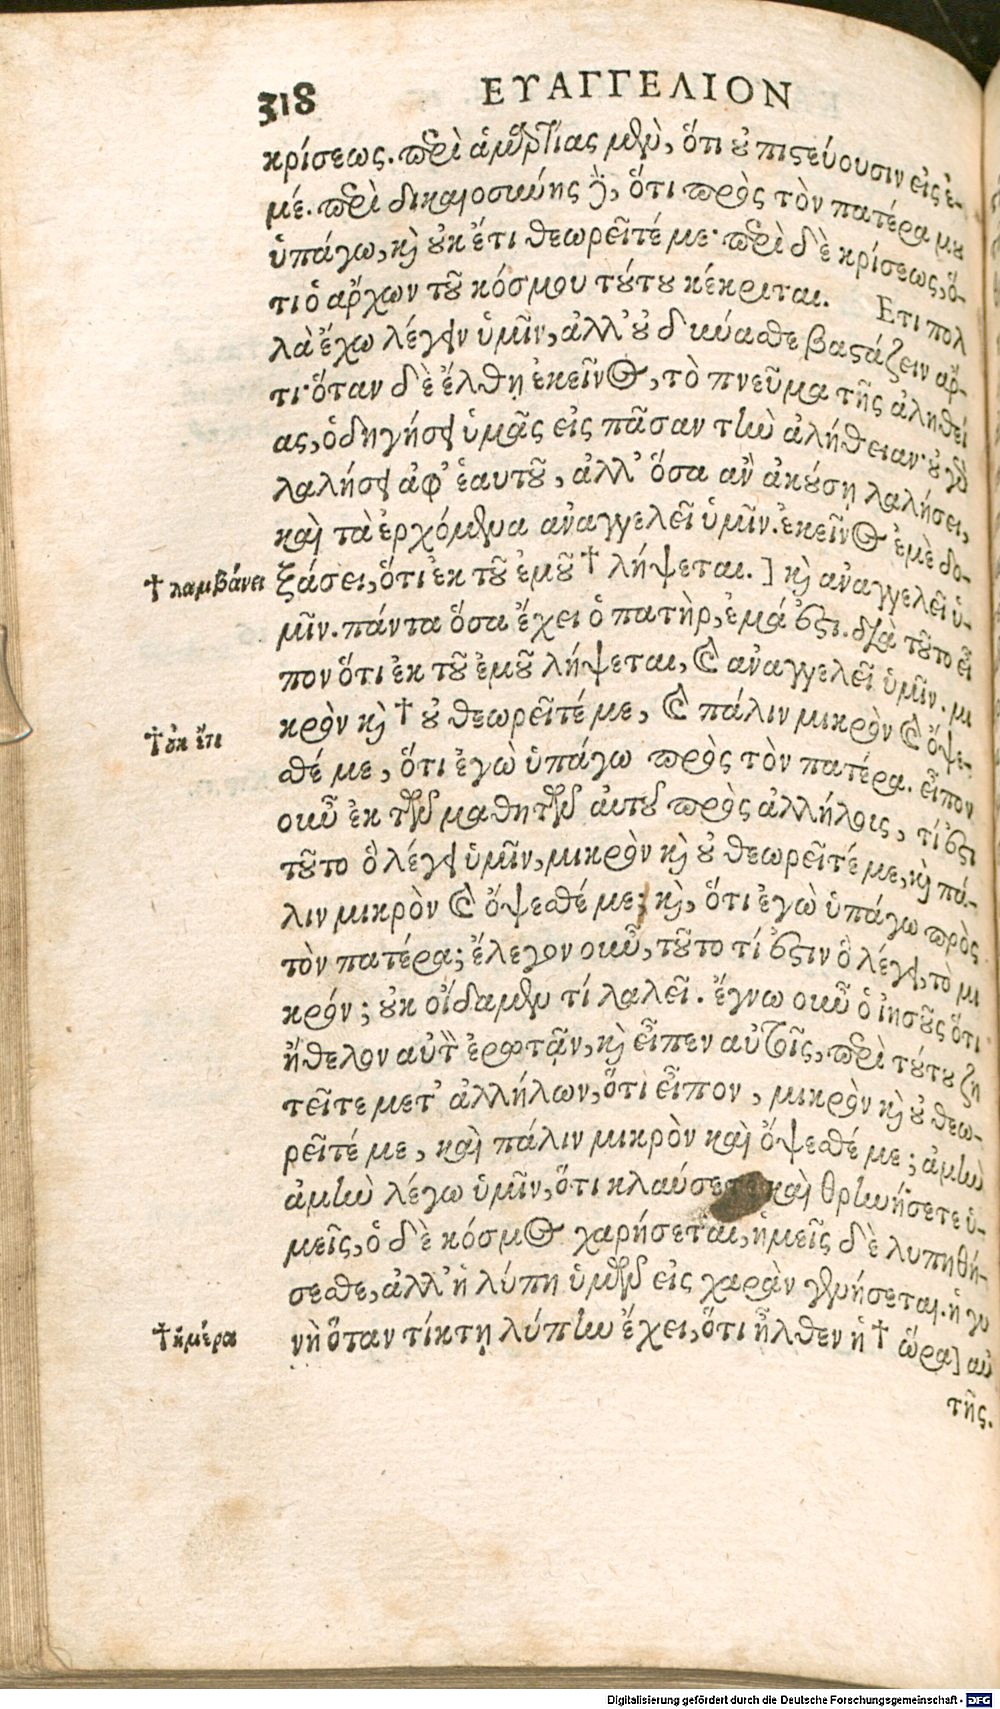 318 ΕΥΑΓΓΕΛΙΟΝ
κρίσεως. περὶ ἁμαρτίας μὲν, ὅτι οὐ πιστεύουσιν εἰς ἐ-
μέ. περὶ δικαιοσύνης δὲ, ὅτι πρὸς τὸν πατέρα μου
ὑπάγω, καὶ οὐκ ἔτι θεωρεῖτέ με· περὶ δὲ κρίσεως, ὅ-
τι ὁ ἄρχων τοῦ κόσμου τούτου κέκριται. Ετι πολ
λὰ ἔχω λέγειν ὑμῖν, ἀλλ' οὐ δύνασθε βαστάζειν ἄρ-
τι· ὅταν δὲ ἔλθῃ ἐκεῖνος, τὸ πνεῦμα τῆς ἀληθεί
ας, ὁδηγήσει ὑμᾶς εἰς πᾶσαν τὴν ἀλήθειαν· οὐ γὰρ
λαλήσει ἀφ' ἑαυτοῦ, ἀλλ' ὅσα ἂν ἀκούσῃ λαλήσει,
καὶ τὰ ἐρχόμενα ἀναγγελεῖ ὑμῖν. ἐκεῖνος ἐμὲ δο-
† λαμβάνει
ξάσει, ὅτι ἐκ τοῦ ἐμοῦ † λήψεται. ] καὶ ἀναγγελεῖ ὑ-
μῖν. πάντα ὅσα ἔχει ὁ πατὴρ, ἐμά ἐστι. διὰ τοῦτο εἶ
πον ὅτι ἐκ τοῦ ἐμοῦ λήψεται, καὶ ἀναγγελεῖ ὑμῖν. μι
κρὸν καὶ † οὐ θεωρεῖτέ με, καὶ πάλιν μικρὸν καὶ ὄψε-
† οὐκ ἔτι
σθέ με, ὅτι ἐγὼ ὑπάγω πρὸς τὸν πατέρα. εἶπον
οὖν ἐκ τῶν μαθητῶν αὐτοῦ πρὸς ἀλλήλους, τί ἐστι
τοῦτο ὃ λέγει ὑμῖν, μικρὸν καὶ οὐ θεωρεῖτέ με, καὶ πά-
λιν μικρὸν καὶ ὄψεσθέ με; καὶ, ὅτι ἐγὼ ὑπάγω πρὸς
τὸν πατέρα; ἔλεγον οὖν, τοῦτο τί ἐστιν ὃ λέγει, τὸ μι
κρόν; οὐκ οἴδαμεν τί λαλεῖ. ἔγνω οὖν ὁ ἰησοῦς ὅτι
ἤθελον αὐτὸν ἐρωτᾷν, καὶ εἶπεν αὐτοῖς, περὶ τούτου ζη
τεῖτε μετ' ἀλλήλων, ὅτι εἶπον, μικρὸν καὶ οὐ θεω-
ρεῖτέ με, καὶ πάλιν μικρὸν καὶ ὄψεσθέ με; ἀμὴν
ἀμὴν λέγω ὑμῖν, ὅτι κλαύσετε καὶ θρηνήσετε ὑ-
μεῖς, ὁ δὲ κόσμος χαρήσεται, ἡμεῖς δὲ λυπηθή-
σεσθε, ἀλλ' ἡ λύπη ὑμῶν εἰς χαρὰν γενήσεται. ἡ γυ
νὴ ὅταν τίκτῃ λύπην ἔχει, ὅτι ἦλθεν ἡ † ὥρα] αὐ
† ἡμέρα
τῆς.
Digitalisierung gefördert durch die Deutsche Forschungsgemeinschaft - DFG